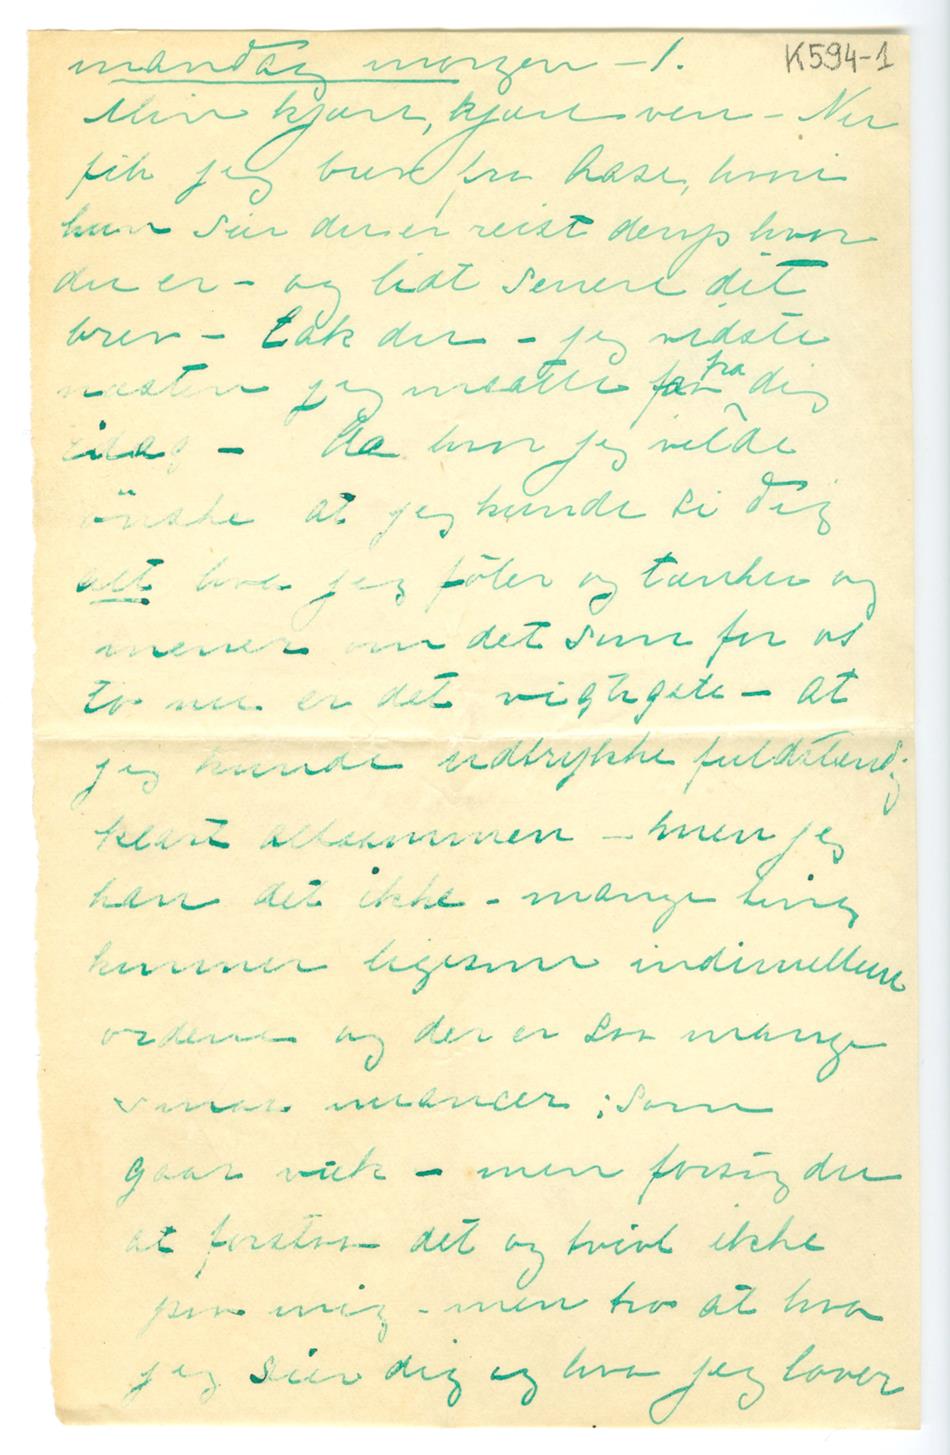 mandag morgen – 1.
K594-1
Min kjære, kjære ven – Nu
fik jeg brev fra Aase, hvori
hun sier du er reist derop hvor
du er – og lidt senere dit
brev – tak du – jeg vidste
næsten jeg maatte faa fra dig
idag – Aa hvor jeg vilde
ønske at jeg kunde si dig
alt hva jeg føler og tænker og
mener om det som for os
to nu er det vigtigste – at
jeg kunde udtrykke fuldstændig
klart altsammen – men jeg
kan det ikke – mange ting
kommer ligesom indimellem
ordene og der er saa mange
smaa nuancer ; som
gaar væk – men forsøg du
at forstaa det og tvivl ikke
paa mig – men tro at hva
jeg sier dig og hva jeg lover